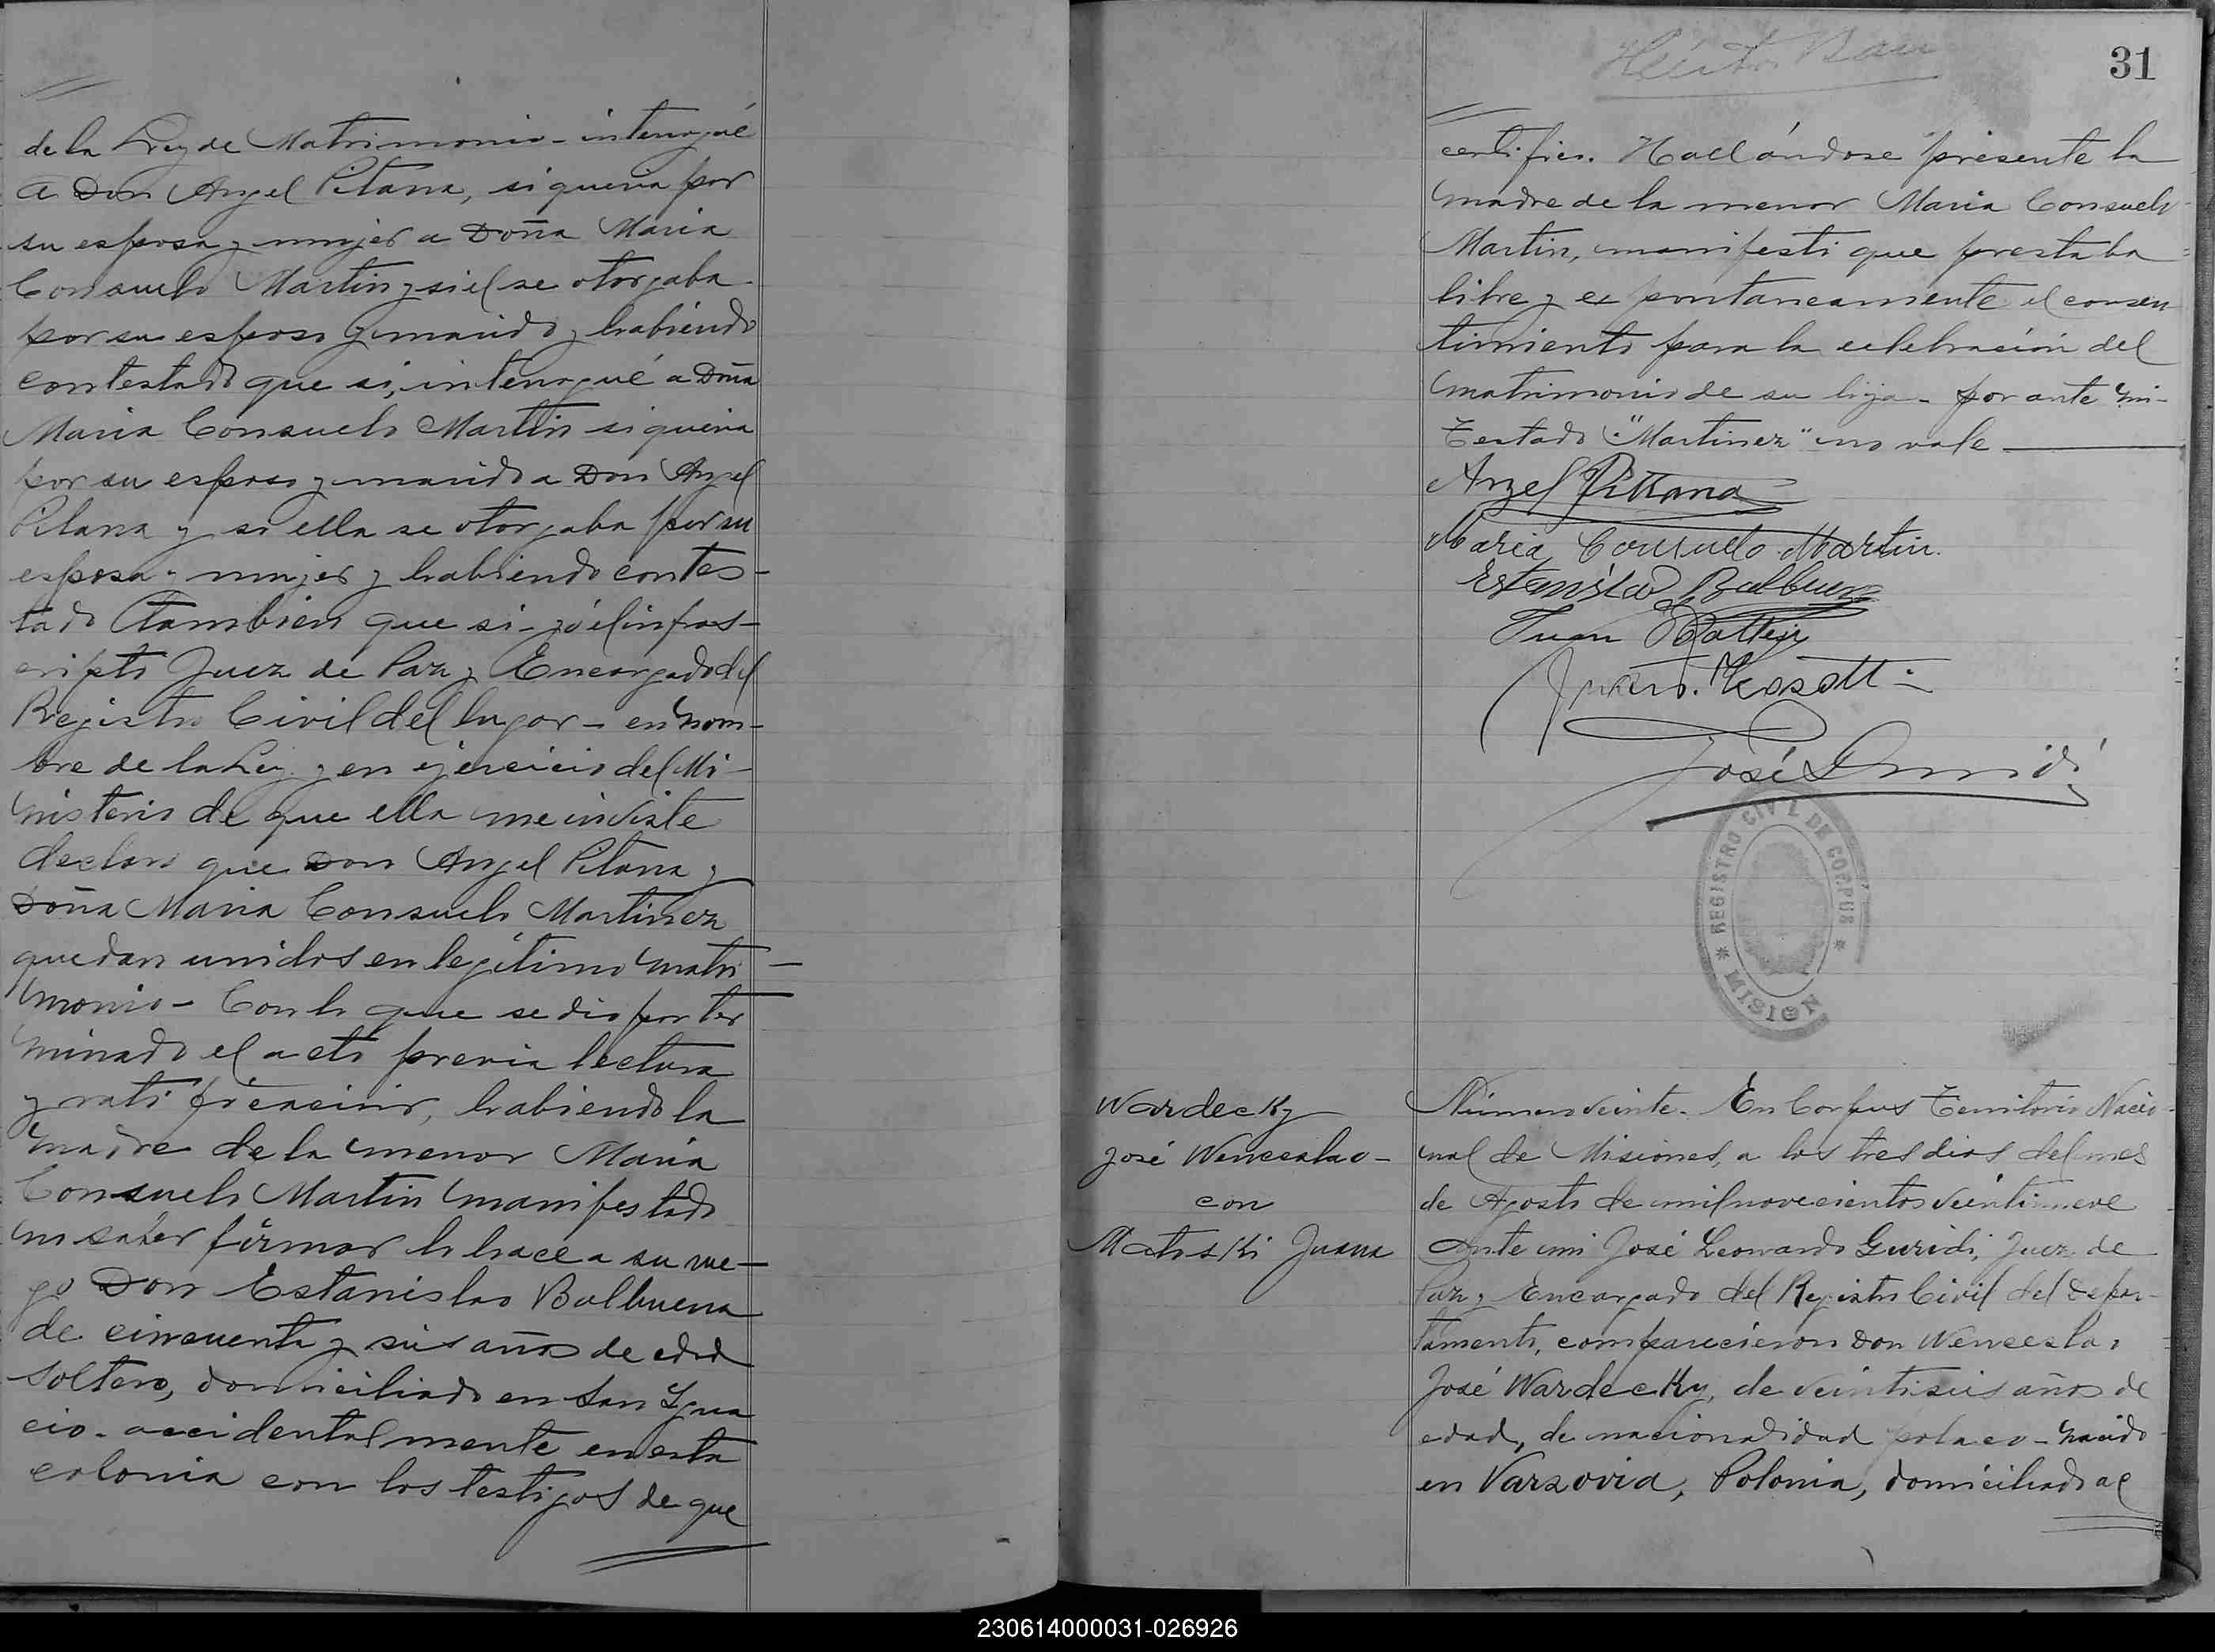 de la Ley de Matrimonio - interrogué
a Don Angel Pitana, si queria por
su esposa y mujer a Doña Maria
Consuelo Martin y si el se otorgaba
por su esposo y marido y habiendo
contestado que si, interrogué a Doña
Maria Consuelo Martin si queria
por su esposo y marido a Don Angel
Pitana y si ella se otorgaba por su
esposa y mujer y habiendo contes-
tado tambien que si - yo el infras-
cripto Juez de Paz y Encargado del
Registro Civil del lugar - en nom-
bre de la Ley y en ejercicio del Mi-
nisterio de que ella me inviste
declaro que Don Angel Pitana y
Doña Maria Consuelo Martinez
quedan unidos en legítimo matri-
monio - Con lo que se dio por ter
minado el acto previa lectura
y ratificacion, habiendo la
madre de la menor Maria
Consuelo Martin manifestado
no saber firmar lo hace a su rue-
go Don Estanislao Balbuena
de cincuenta y seis años de edad
soltero, domiciliado en San Igna
cio - accidentalmente en esta
colonia con los testigos de que
31
certifico. Hallándose presente la
madre de la menor Maria Consuelo
Martin, manifestó que prestaba
libre y espontaneamente el consen
timiento para la celebración del
matrimonio de su hija - por ante mi -
Testado: "Martinez" no vale
Angel Pittana
Maria Consuelo Martin.
Estanislao Balbuena
Juan
José Guridi
REGISTRO CIVIL DE CORPUS
MISION
Wardecky
José Wenceslao -
con
Matoski Juana
Número veinte - En Corpus Territorio Nacio-
nal de Misiones, a los tres dias del mes
de Agosto de mil novecientos veintinueve
Ante mi José Leonardo Guridi, Juez de
Paz y Encargado del Registro Civil del Depar-
tamento, comparecieron Don Wenceslao
José Wardecky, de veintiseis años de
edad, de nacionalidad polaco - nacido
en Varsovia, Polonia, domiciliado ac
230614000031-026926